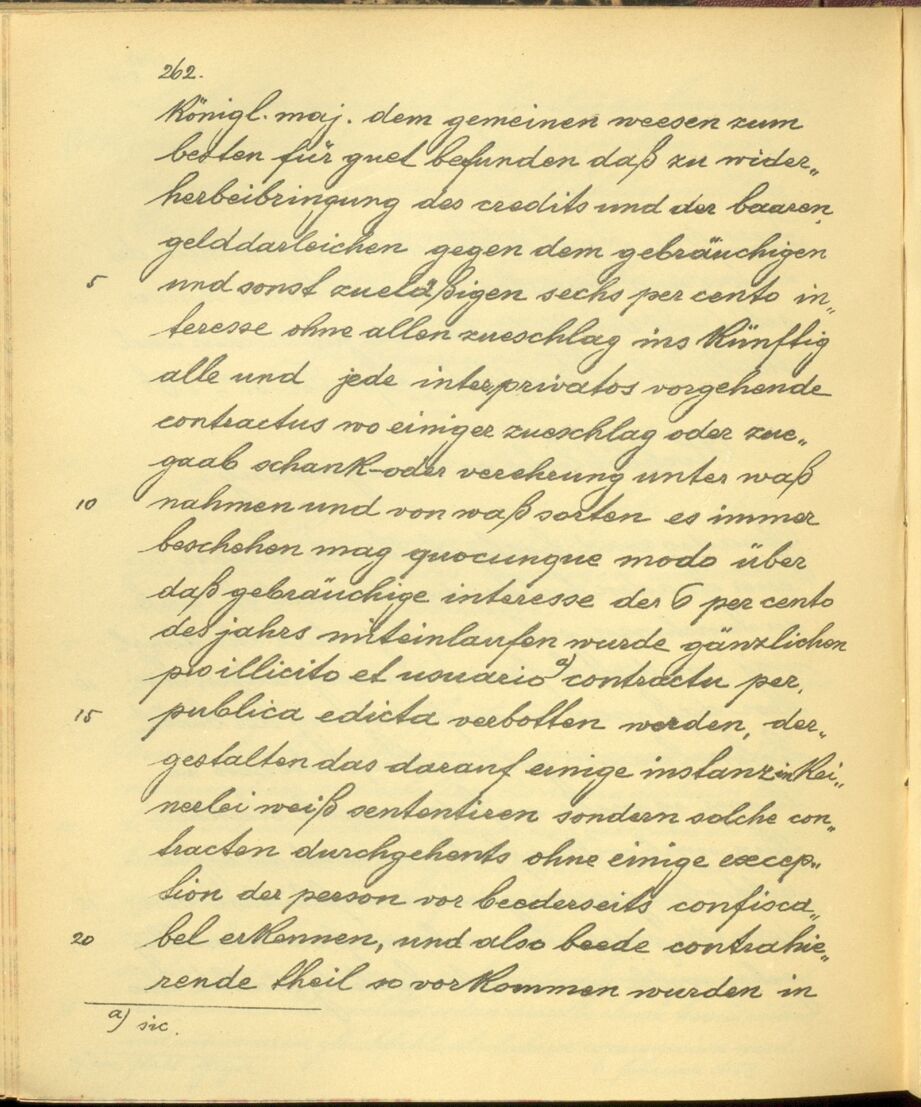 262.
Königl. maj. dem gemeinen weesen zum
besten für guet befunden daß zu wider„
herbeibringung des credits und der baaren
gelddarleichen gegen dem gebräuchigen
5 und sonst zueläßigen sechs per cento in„
teresse ohne allen zueschlag ins künftig
alle und jede inter privatos vorgehende
contractus wo einiger zueschlag oder zue„
gaab schank-oder verehrung unter waß
10 nahmen und von waß sorten es immer
beschehen mag quocunque modo über
daß gebräuchige interesse der 6 per cento
des jahrs miteinlaufen wurde gänzlichen
pro illicito et usuario a) contractu per
15 publica edicta verbotten werden, der„
gestalten das darauf einige instanz in kei„
nerlei weiß sententiren sondern solche con„
tracten durchgehents ohne einige excep„
tion der person vor beederseits confisca„
20 bel erkennen, und also beede contrahie„
rende theil so vorkommen wurden in
a) sic.